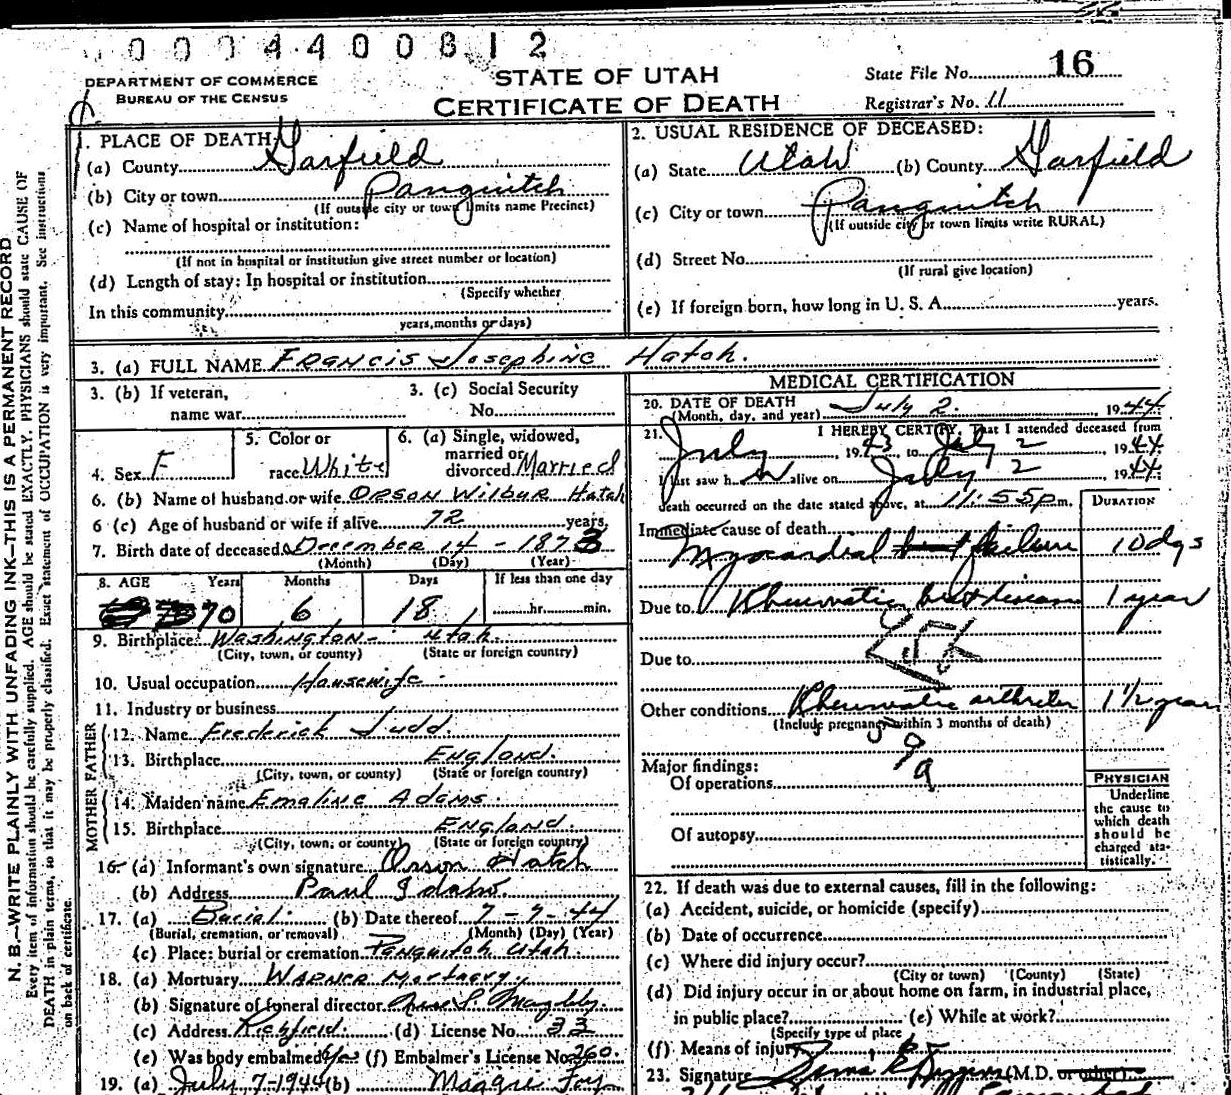 0004400812
DEPARTMENT OF COMMERCE
BUREAU OF THE CENSUS
STATE OF UTAH
CERTIFICATE OF DEATH
State File No. 16
Registrar's No. 11
N. B.—WRITE PLAINLY WITH UNFADING INK—THIS IS A PERMANENT RECORD
Every item of information should be carefully supplied. AGE should be stated EXACTLY, PHYSICIANS should state CAUSE OF
DEATH in plain terms, so that it may be properly classified. Exact statement of OCCUPATION is very important. See instructions
on back of certificate.
1. PLACE OF DEATH
(a) County Garfield
(b) City or town Panguitch
(If outside city or town limits name Precinct)
(c) Name of hospital or institution:
(If not in hospital or institution give street number or location)
(d) Length of stay: In hospital or institution
(Specify whether
In this community
years, months or days)
2. USUAL RESIDENCE OF DECEASED:
(a) State Utah (b) County Garfield
(c) City or town Panguitch
(If outside city or town limits write RURAL)
(d) Street No.
(If rural give location)
(e) If foreign born, how long in U. S. A. years.
3. (a) FULL NAME Francis Josephine Hatch.
3. (b) If veteran, name war
3. (c) Social Security No.
4. Sex F
5. Color or race White
6. (a) Single, widowed, married or divorced Married
6. (b) Name of husband or wife Orson Wilbur Hatch
6 (c) Age of husband or wife if alive 72 years
7. Birth date of deceased December 14 - 1873
(Month) (Day) (Year)
8. AGE Years Months Days If less than one day
70 6 18 hr. min.
9. Birthplace: Washington - Utah.
(City, town, or county) (State or foreign country)
10. Usual occupation Housewife
11. Industry or business
FATHER
12. Name Frederick Judd.
13. Birthplace England.
(City, town, or county) (State or foreign country)
MOTHER
14. Maiden name Emaline Adams.
15. Birthplace England.
(City, town, or county) (State or foreign country)
16. (a) Informant's own signature Orson Hatch
(b) Address Paul Idaho.
17. (a) Burial. (b) Date thereof 7-7-44
(Burial, cremation, or removal) (Month) (Day) (Year)
(c) Place: burial or cremation Panguitch Utah.
18. (a) Mortuary Warner Mortuary
(b) Signature of funeral director
(c) Address Richfield. (d) License No. 33
(e) Was body embalmed Yes (f) Embalmer's License No. 260.
19. (a) July 7-1944 (b) Maggie Foy
MEDICAL CERTIFICATION
20. DATE OF DEATH
(Month, day, and year) July 2. 1944
21. I HEREBY CERTIFY, That I attended deceased from
July 1943, to July 2 1944
I last saw h alive on July 2 1944
death occurred on the date stated above, at 11:55 p m.
DURATION
Immediate cause of death
Myocardial failure 10 dys
Due to Rheumatic heart disease 1 year
Due to
Other conditions Rheumatic arthritis 1 1/2 years
(Include pregnancy within 3 months of death)
Major findings:
Of operations
Of autopsy
PHYSICIAN
Underline
the cause to
which death
should be
charged sta-
tistically.
22. If death was due to external causes, fill in the following:
(a) Accident, suicide, or homicide (specify)
(b) Date of occurrence
(c) Where did injury occur?
(City or town) (County) (State)
(d) Did injury occur in or about home on farm, in industrial place,
in public place? (e) While at work?
(Specify type of place
(f) Means of injury
23. Signature (M.D. or other)